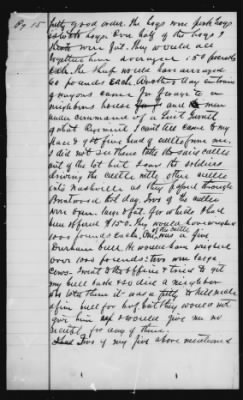 Pg 15
pretty good order. The hogs were fresh hogs
One half of the hogs I
think were fat. They would all
together have averaged 150 pounds
each. The sheep would have averaged
60 pounds each. Another day a train
of wagons came for forage to a
neighbors house and men
under command of a Lieut
of what Regiment I cant tell came to my
place & got five head of cattle from me.
I did not see them take the said cattle
out of the lot but I saw the soldiers
driving the cattle with other cattle
into Nashville as they passed through
Brentwood that day. Two of the cattle
were oxen large & fat. For which I had
been offered $150. They would have weighed
1000 pounds each. One of the cattle was a fine
Durham bull. He would have weighed
over 1000 pounds: two were large
cows. I went to the officer & tried to get
my bull back & so did a neighbor
who told them it was a pity to kill such a
fine bull for beef, but they would not
give him up & would give me no
receipt for any of them.
Two of my five above mentioned